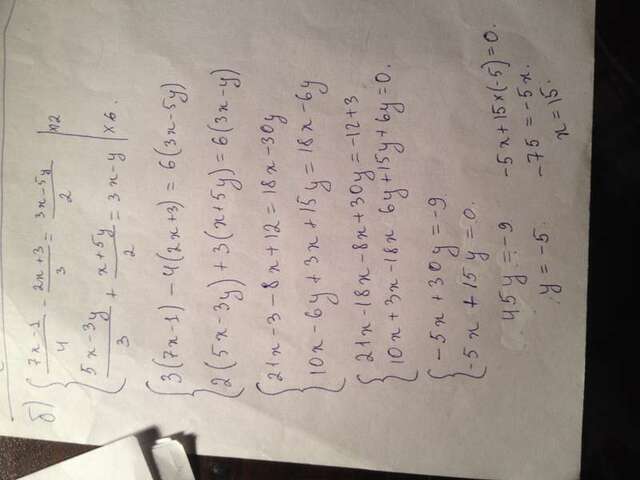 б) { (7x-1)/4 - (2x+3)/3 = (3x-5y)/2 | x2
(5x-3y)/3 + (x+5y)/2 = 3x-y | x6.
{ 3(7x-1) - 4(2x+3) = 6(3x-5y)
2(5x-3y) + 3(x+5y) = 6(3x-y)
{ 21x-3-8x+12 = 18x-30y
10x-6y+3x+15y = 18x-6y
{ 21x-18x-8x+30y = -12+3
10x+3x-18x 6y+15y+6y = 0.
{ -5x+30y = -9
-5x+15y = 0.
45y = -9
y = -5.
-5x+15x(-5) = 0.
-75 = -5x.
x = 15.